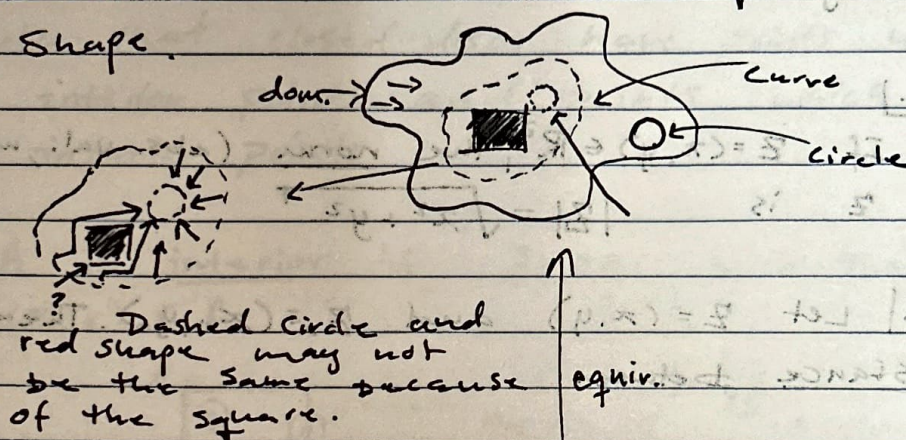 Shape.
dom.
Curve
Circle
?
Dashed Circle and
red shape may not
be the same because
of the square.
equiv.